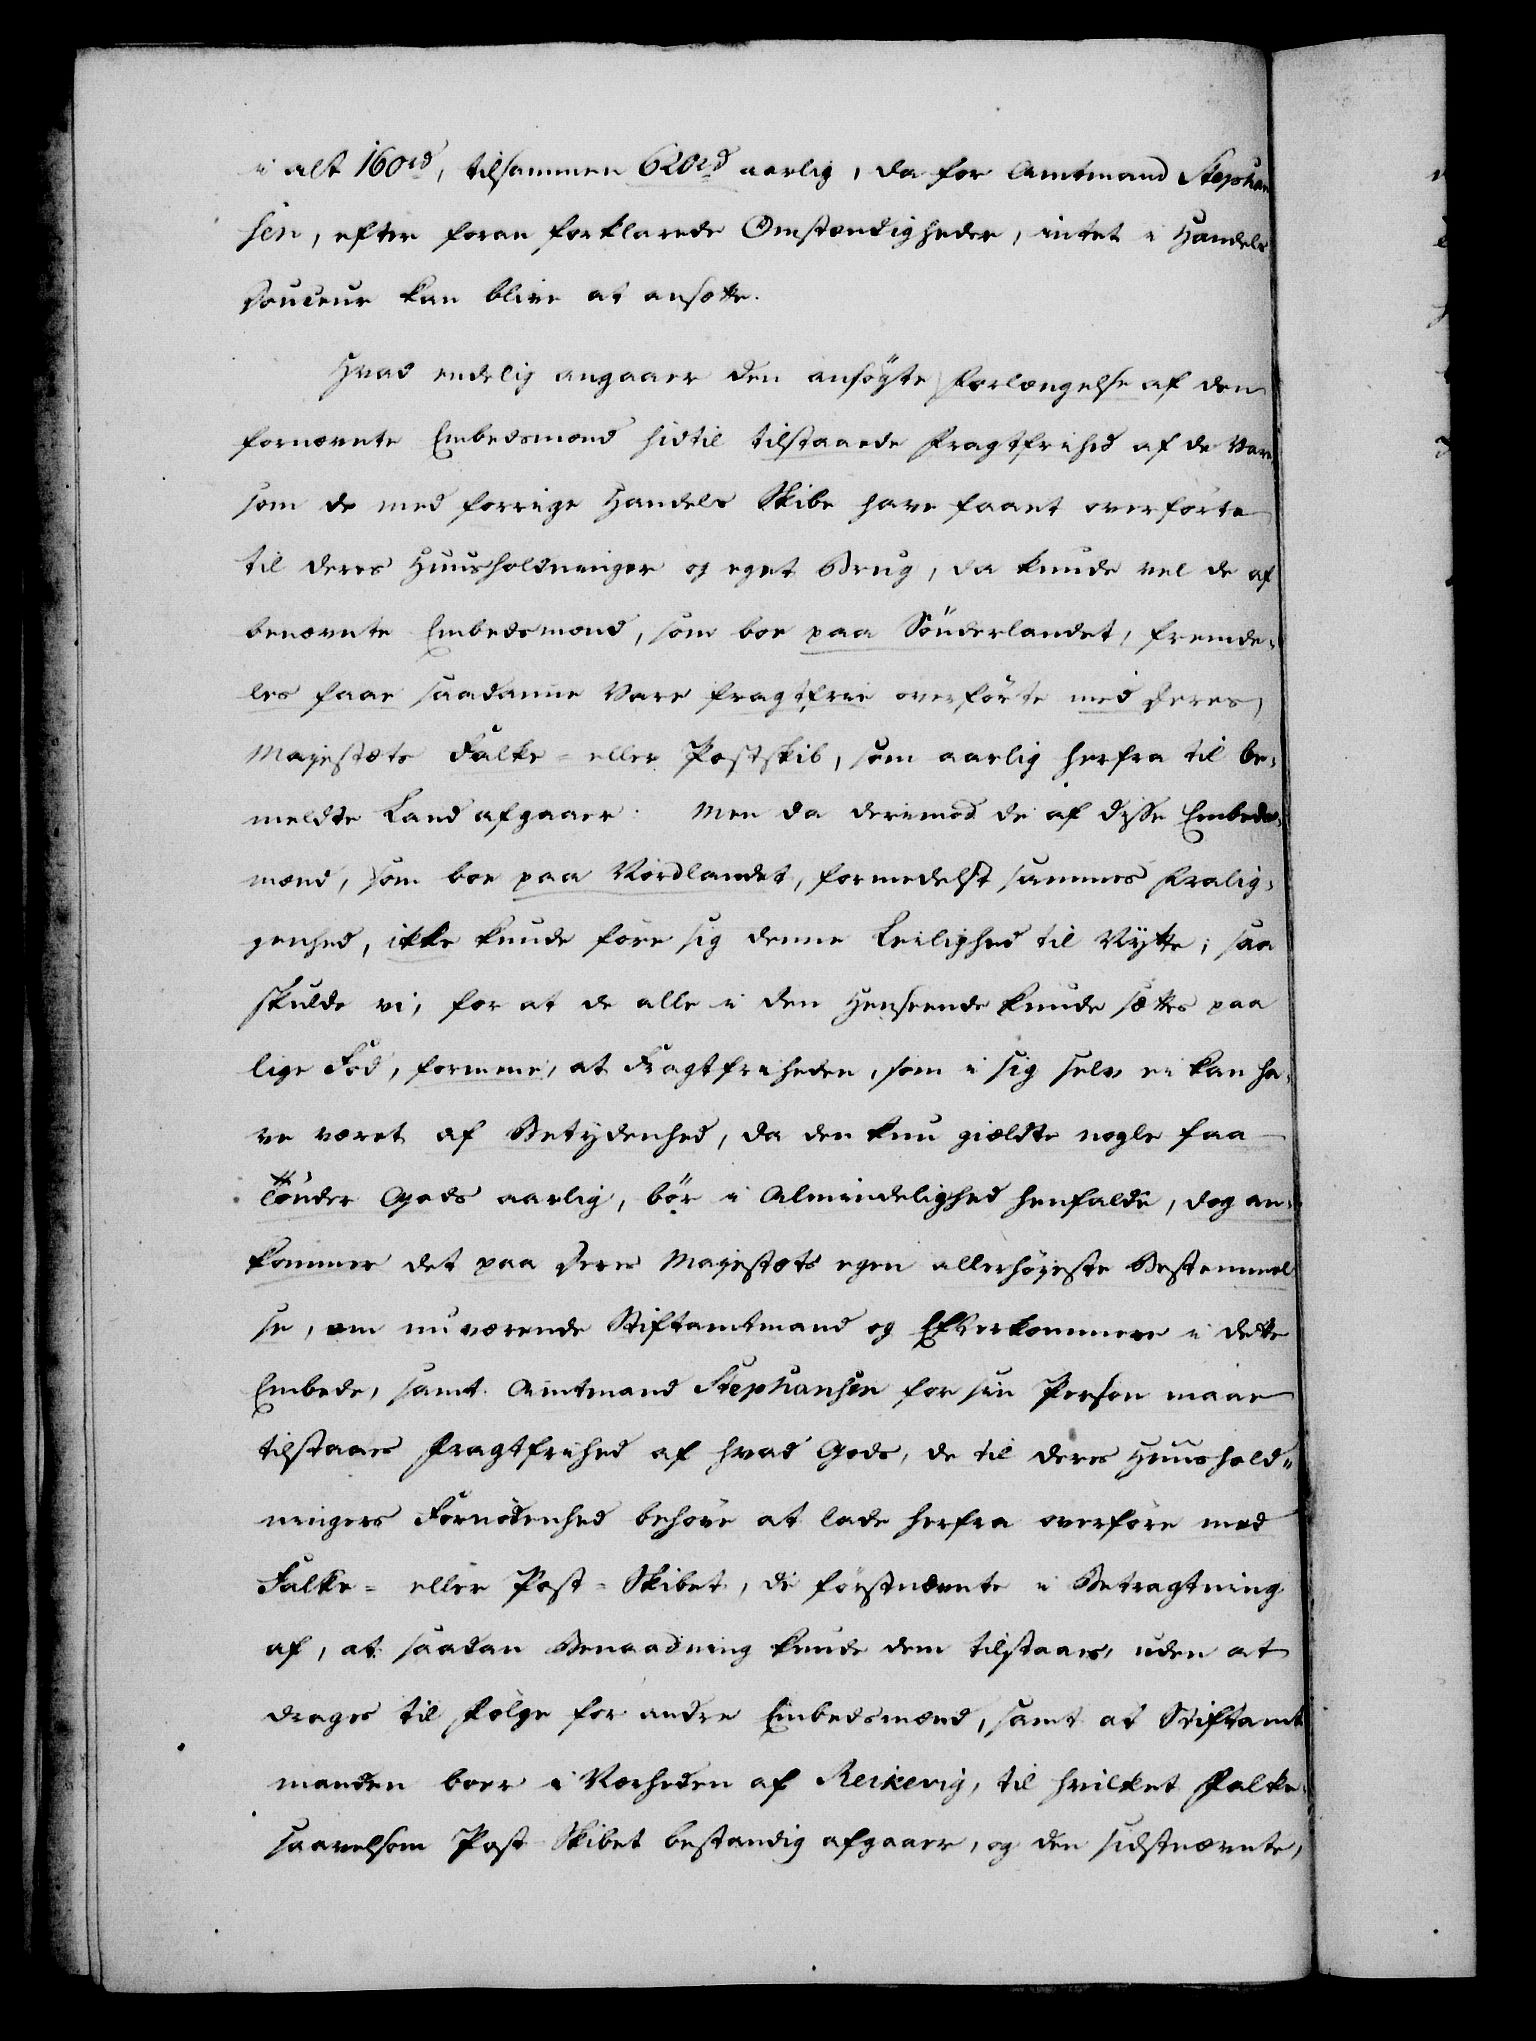 i alt 160rd, tilsammen 620rd aarlig, da for Amtmand Stephan
sen, efter foran forklarede Omstændigheder, intet i Handels
Douceur kan blive at ansætte.
Hvad endelig angaaer den ansøgte Forlængelse af den
fornævnte Embedsmænd hidtil tilstaaede Fragtfrihed af de Vare
som de med forrige Handels Skibe have faaet overførte
til deres Huusholdninger og eget Brug, da kunde vel de af
benævnte Embedsmænd, som boe paa Sønderlandet, fremde-
les faae saadanne Vare fragtfrie overførte med Deres
Majestæts Falke- eller Postskib, som aarlig herfra til be-
meldte Land afgaaer. Men da derimod de af disse Embeds-
mænd, som boe paa Nordlandet, formedelst sammes Fralig-
genhed, ikke kunde føre sig denne Leilighed til Nytte; saa
skulde vi, for at de alle i den Henseende kunde sættes paa
lige Fod, formene, at Fragtfriheden, som i sig selv ei kan ha-
ve været af Betydenhed, da den kun gieldte nogle faa
Tønder Gods aarlig, bør i Almindelighed henfalde, dog an-
kommer det paa Deres Majestæts egen allerhøyeste Bestemmel
se, om nuværende Stiftamtmand og Efterkommere i dette
Embede, samt Amtmand Stephansen for sin Person maae
tilstaaes Fragtfrihed af hvad Gods, de til deres Huushold-
ningers Fornødenhed behøve at lade herfra overføre med
Falke- eller Post-Skibet, de førstnævnte i Betragtning
af, at saadan Benaadning kunde dem tilstaaes, uden at
drages til Følge for andre Embedsmænd, samt at Stiftamt
manden boer i Nærheden af Reikevig, til hvilket Falke-
saavelsom Post-Skibet bestandig afgaaer, og den sidstnævnte,